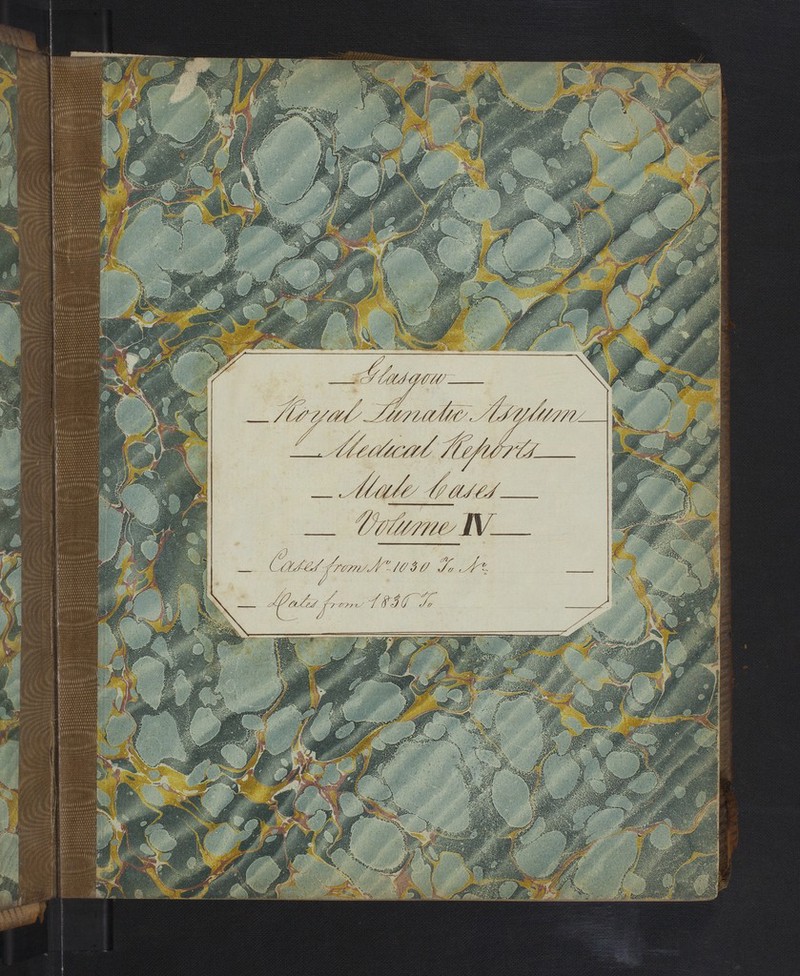 Glasgow
Royal Lunatic Asylum
Medical Reports
Male Cases
Volume IV
Cases from No. 1030 To No.
Dates from 1836 To